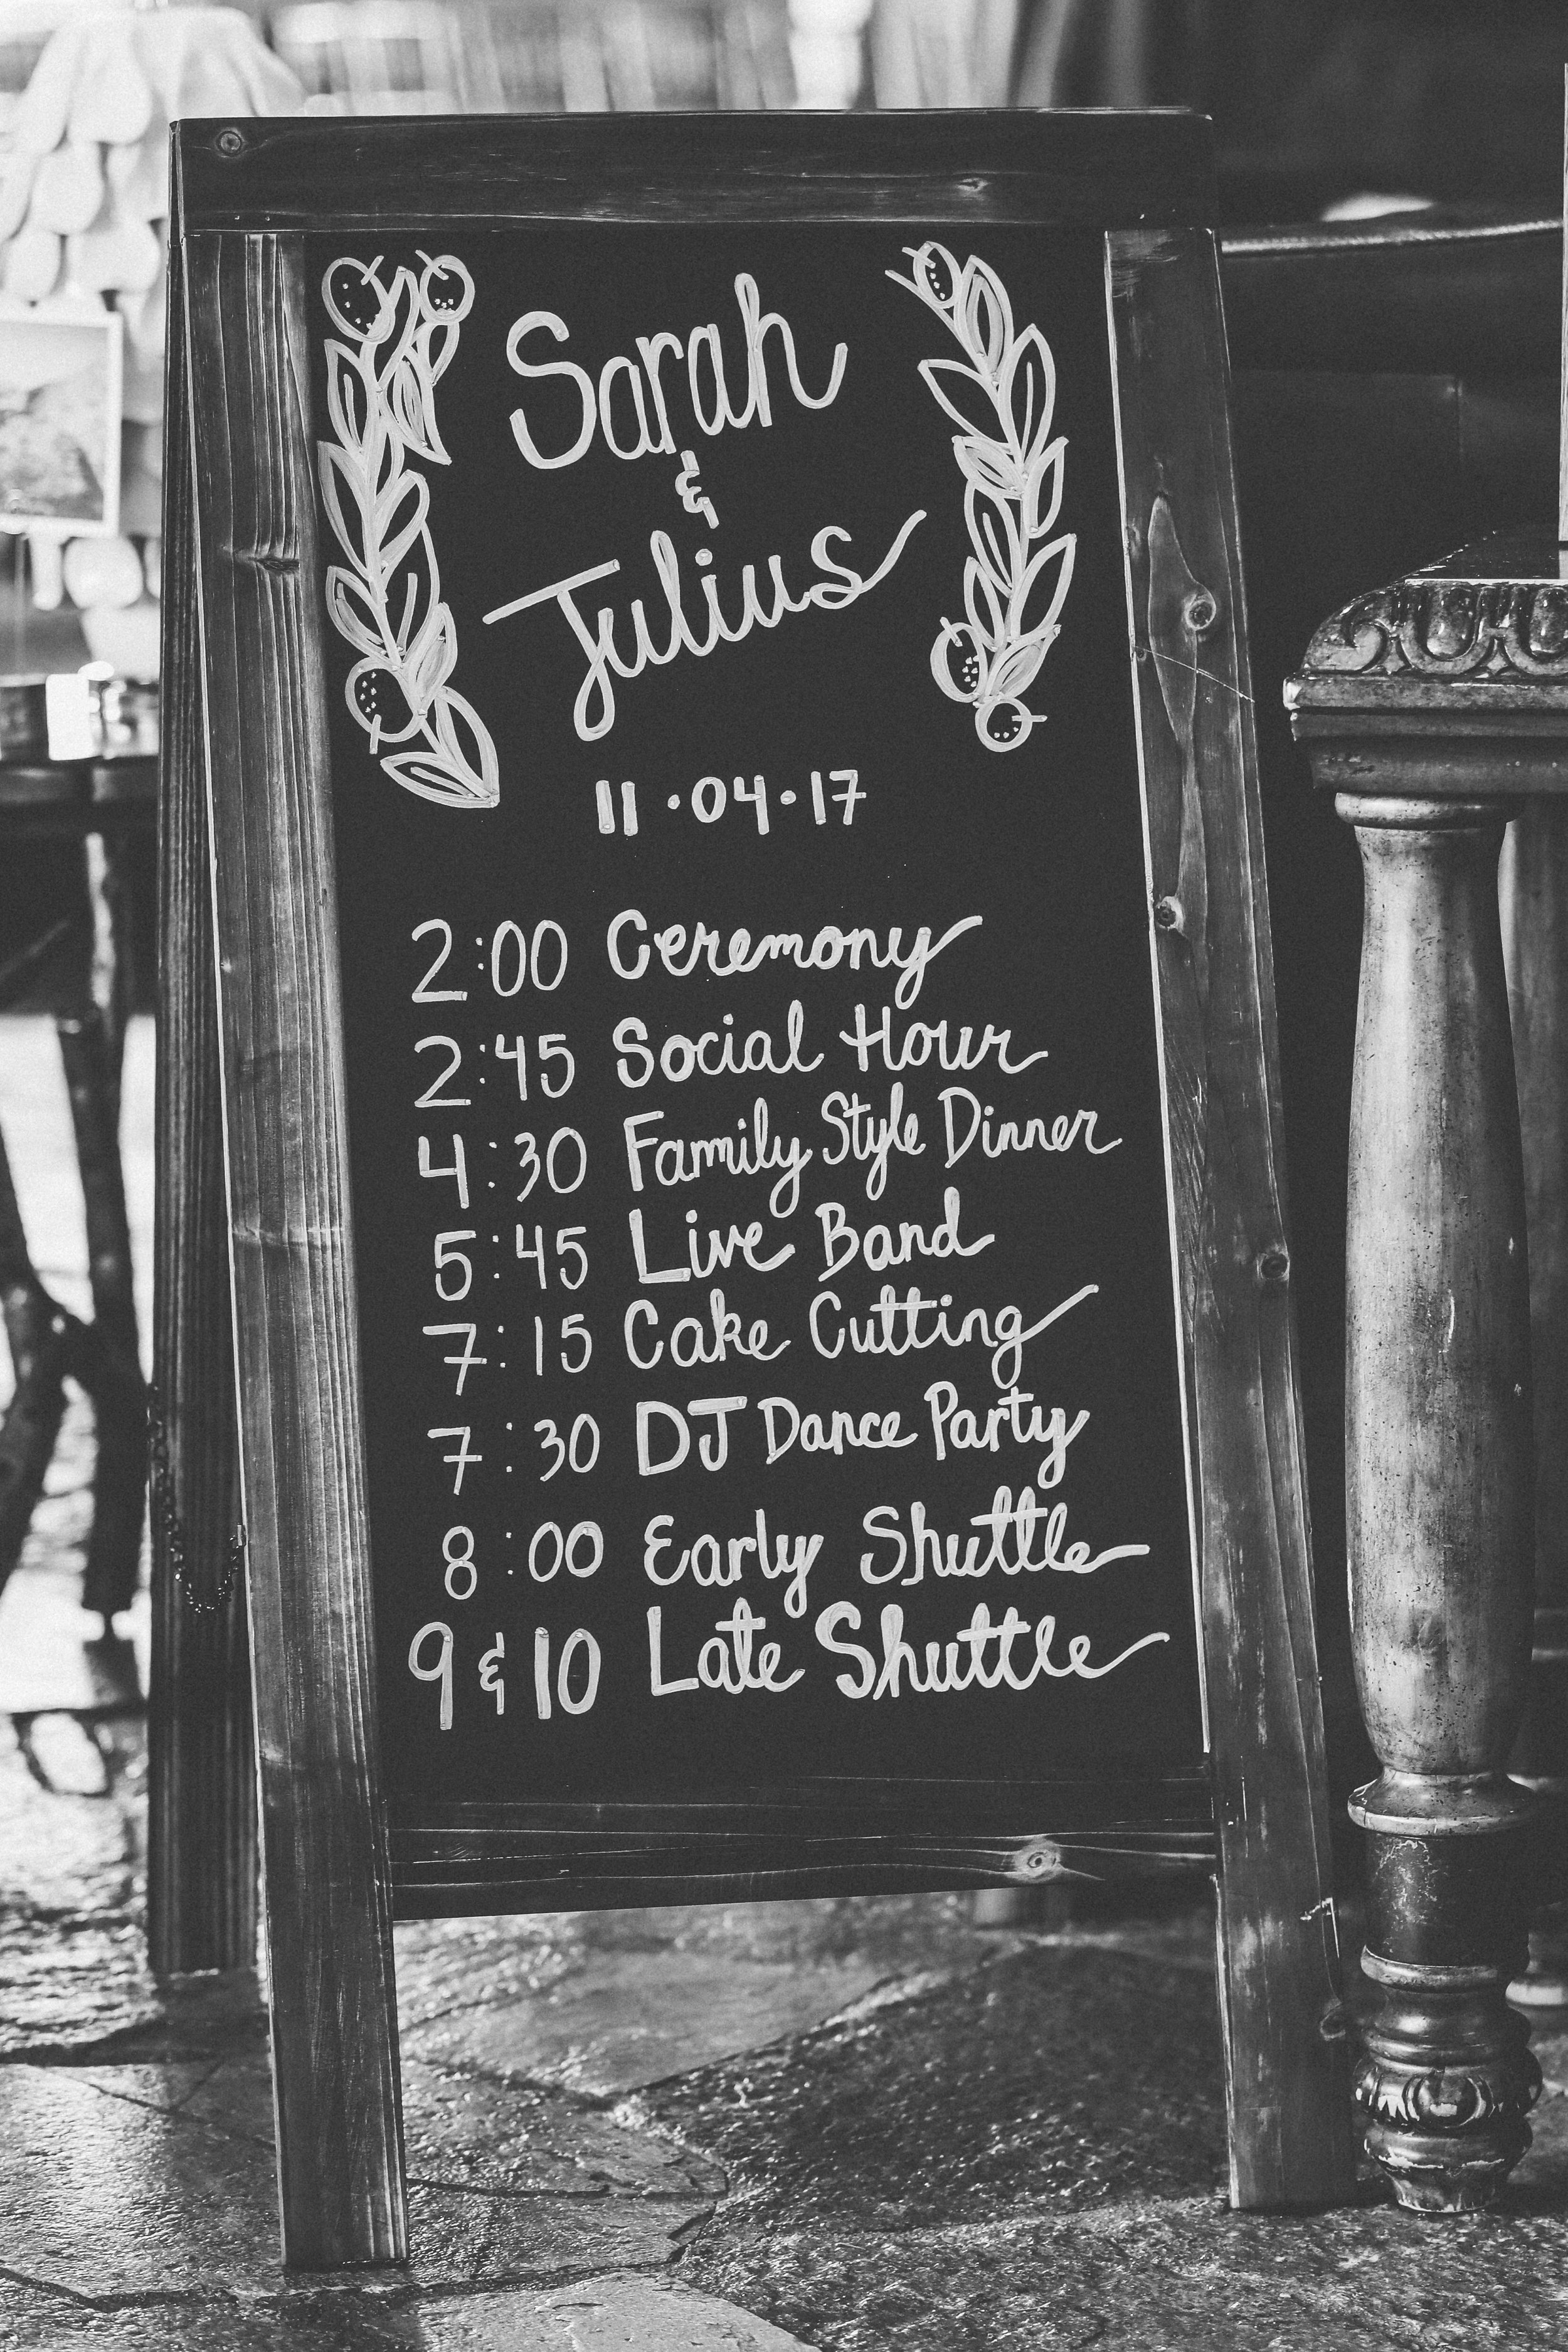 Sarah
&
Julius
11·04·17
2:00 Ceremony
2:45 Social Hour
4:30 Family Style Dinner
5:45 Live Band
7:15 Cake Cutting
7:30 DJ Dance Party
8:00 Early Shuttle
9 & 10 Late Shuttle